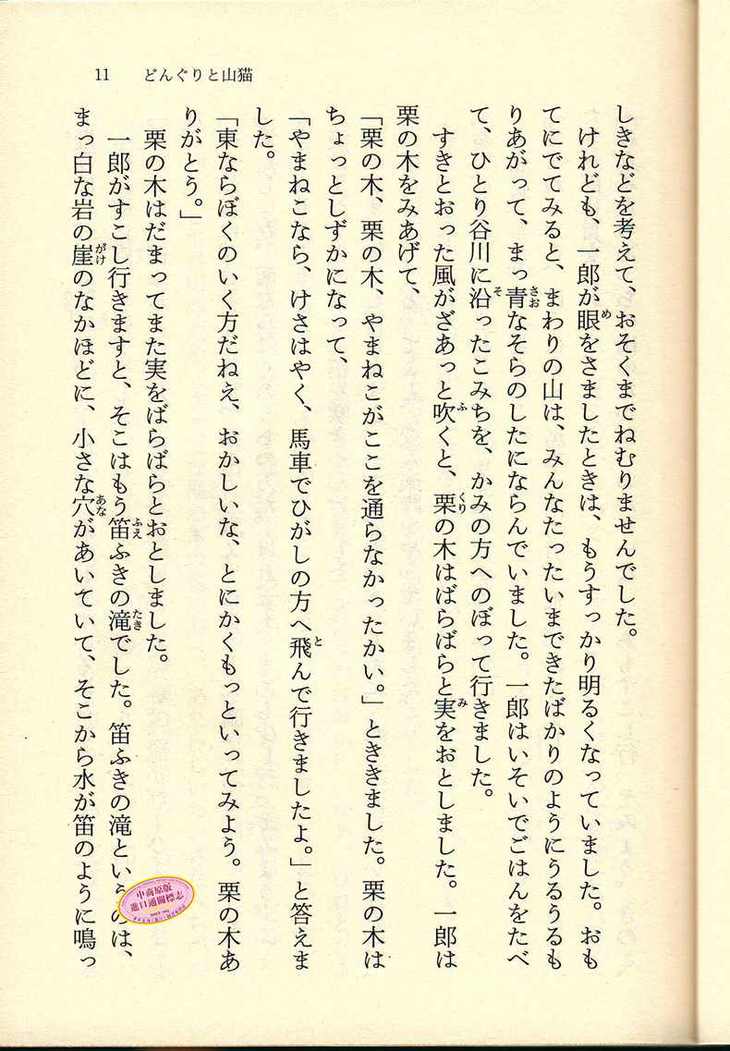 11 どんぐりと山猫
しきなどを考えて、おそくまでねむりませんでした。
けれども、一郎が眼をさましたときは、もうすっかり明るくなっていました。おも
てにでてみると、まわりの山は、みんなたったいまできたばかりのようにうるうるも
りあがって、まっ青なそらのしたにならんでいました。一郎はいそいでごはんをたべ
て、ひとり谷川に沿ったこみちを、かみの方へのぼって行きました。
すきとおった風がざあっと吹くと、栗の木はばらばらと実をおとしました。一郎は
栗の木をみあげて、
「栗の木、栗の木、やまねこがここを通らなかったかい。」とききました。栗の木は
ちょっとしずかになって、
「やまねこなら、けさはやく、馬車でひがしの方へ飛んで行きましたよ。」と答えま
した。
「東ならぼくのいく方だねえ、おかしいな、とにかくもっといってみよう。栗の木あ
りがとう。」
栗の木はだまってまた実をばらばらとおとしました。
一郎がすこし行きますと、そこはもう笛ふきの滝でした。笛ふきの滝というのは、
まっ白な岩の崖のなかほどに、小さな穴があいていて、そこから水が笛のように鳴っ
め
さお
そ
ふ
くり
み
と
ふえ
たき
がけ
あな
中商原版
進口通關標志